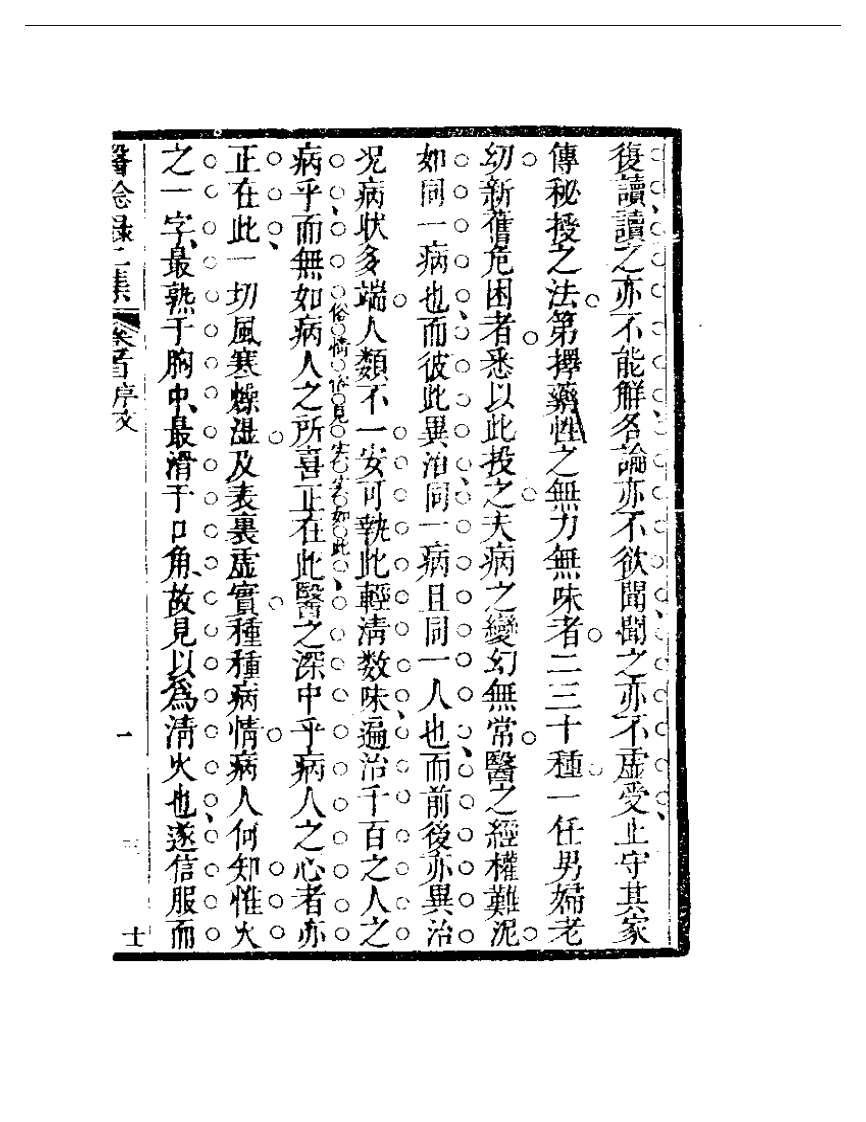 復讀讀之亦不能解各論亦不欲聞聞之亦不虛受止守其家
傳秘授之法第擇藥性之無力無味者二三十種一任男婦老
幼新舊危困者悉以此投之夫病之變幻無常醫之經權難泥
如同一病也而彼此異治同一病且同一人也而前後亦異治
况病狀多端人類不一安可執此輕清数味遍治千百之人之
俗情俗見
如此
病乎而無如病人之所喜正在此醫之深中乎病人之心者亦
正在此一切風寒燥湿及表裏虛實種種病情病人何知惟火
之一字最熟于胸中最滑于口角故見以為清火也遂信服而
醫 錄二集
卷首序文
一
十